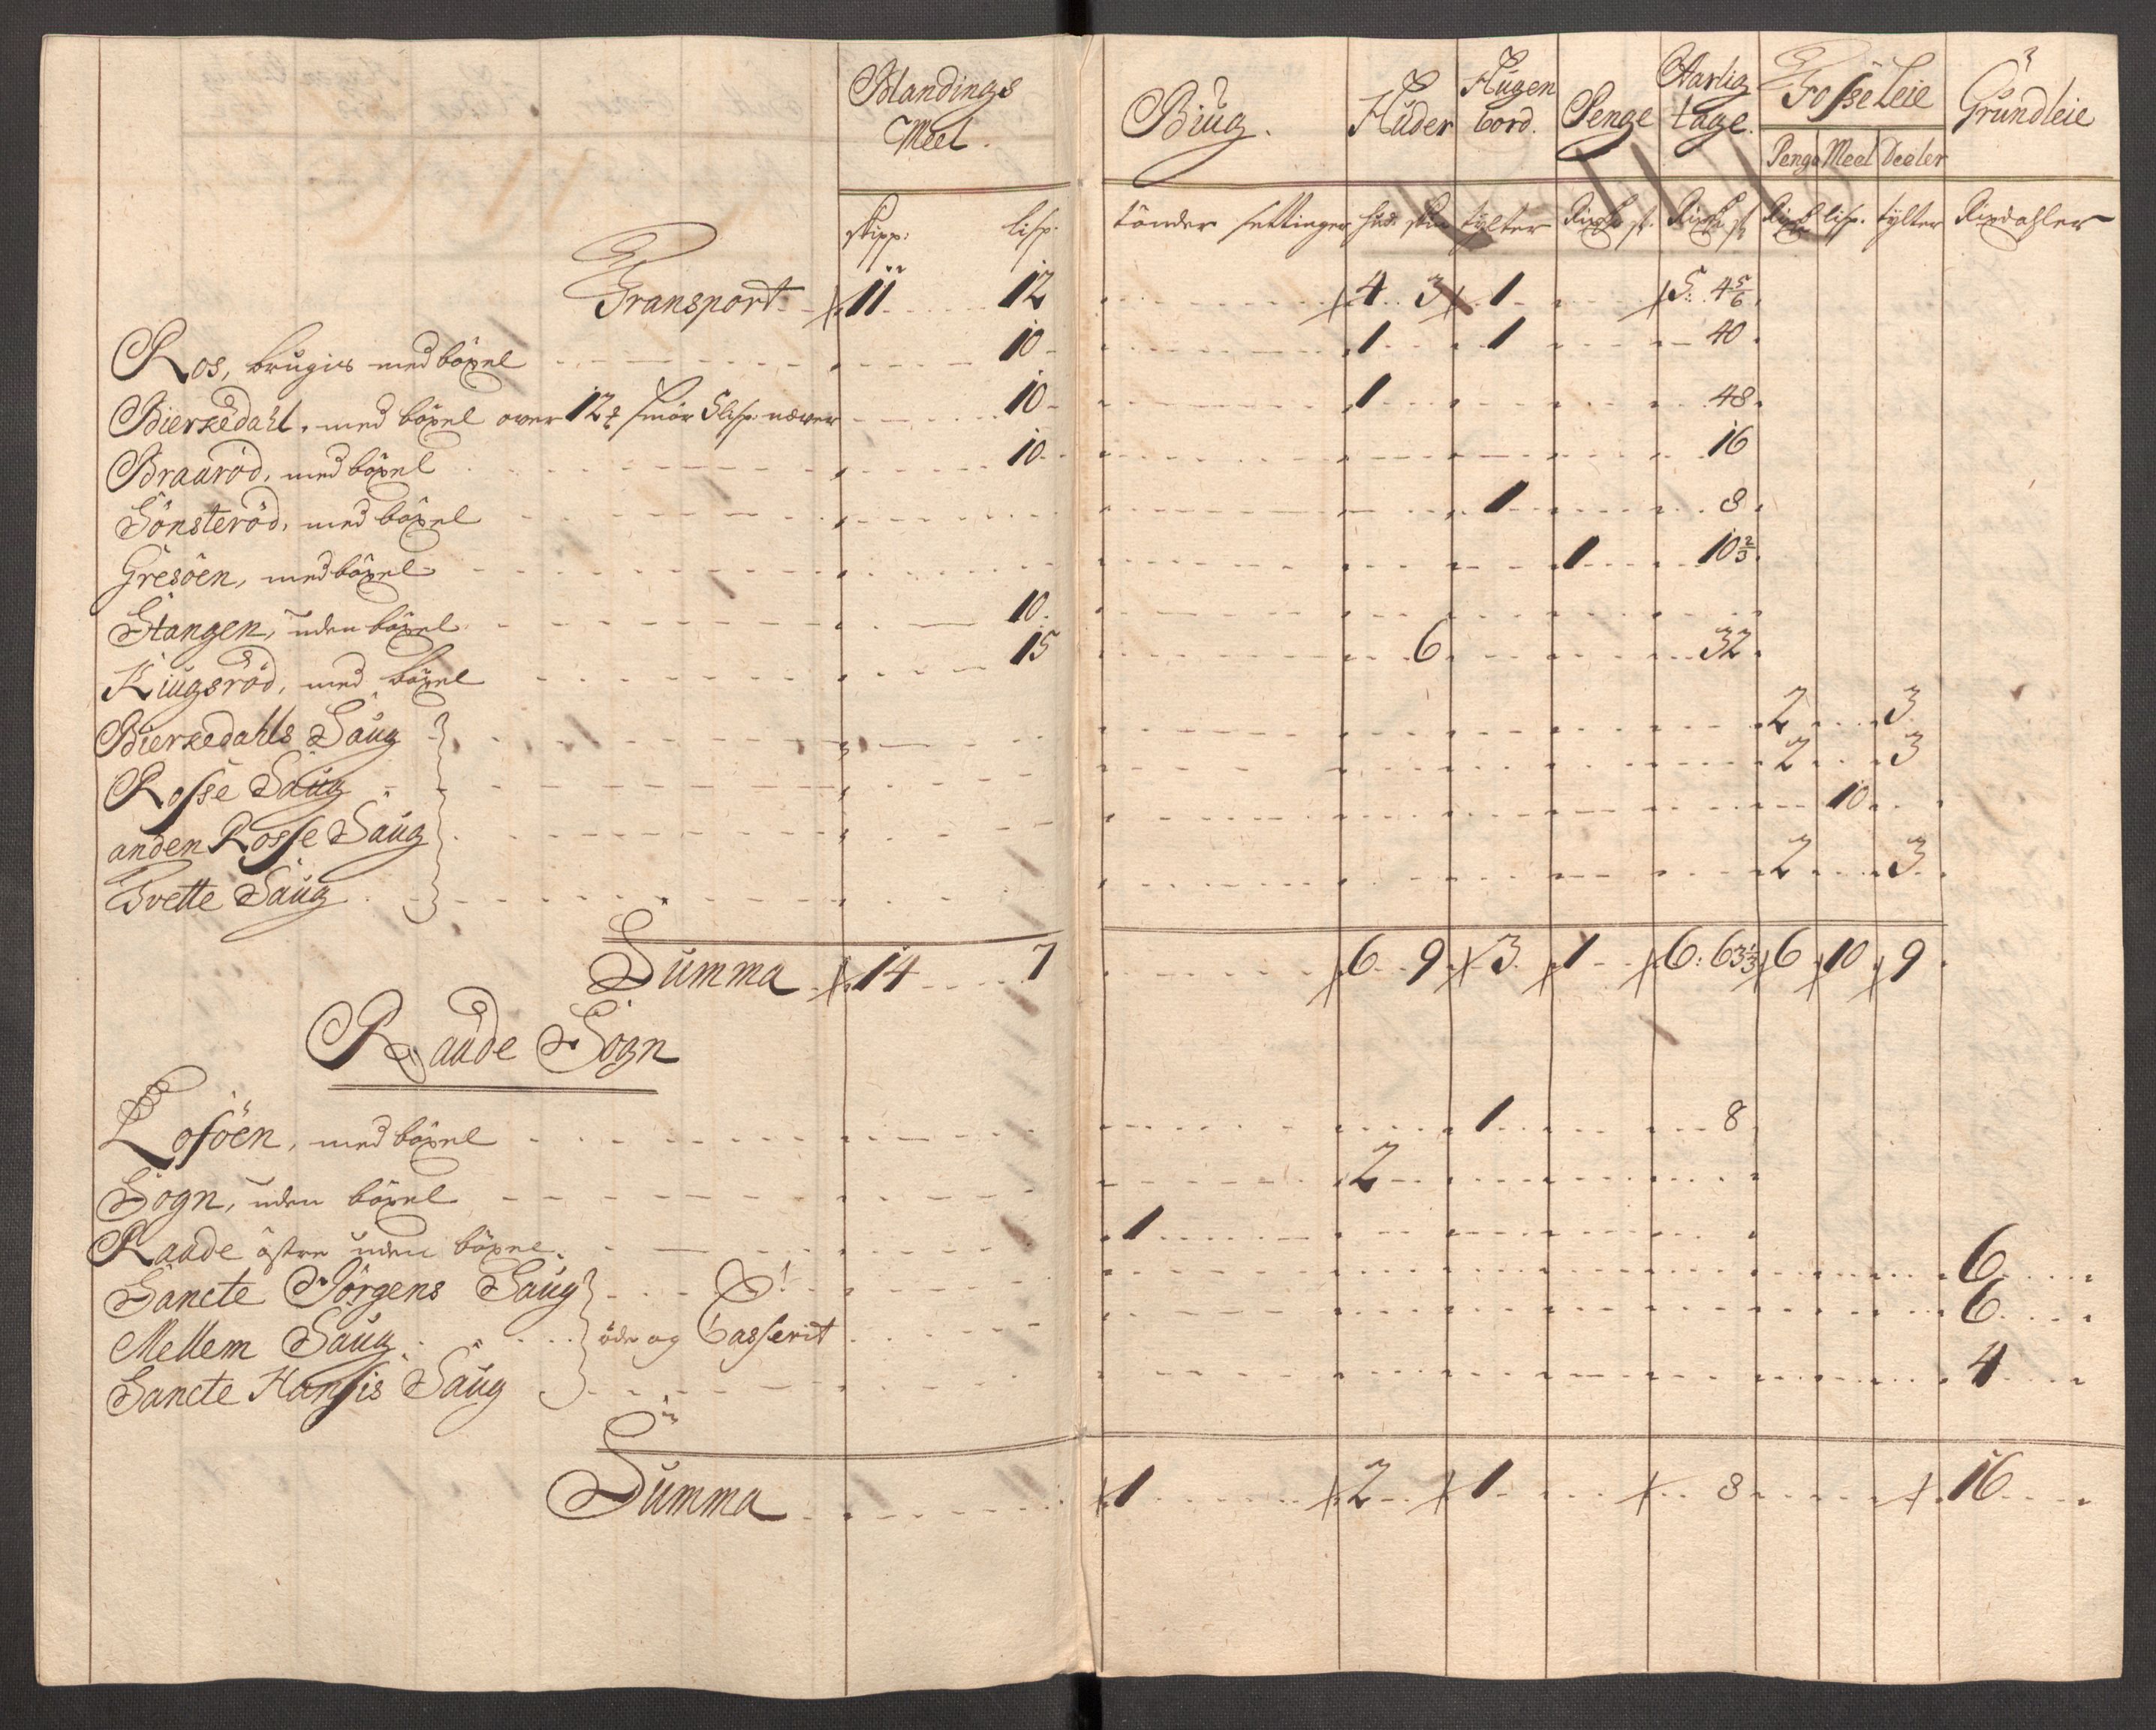 Blandings Meel. Biug. Huder Hugen bord. Penge Aarlig tage. Fosse Leie Grundleie
Penge Meel Deeler
skipp: lisp. tönder settinger hud: skin tylter Rixd st. Rixd st Rixd lisp. tylter Rixdahler
Transport 11 12 4 3 1 5: 4 5/6
Ros, brugis med böxel 10 1 1 40
Bierkedahl, med böxel over 12 smör 5 lisp: næver 10 1 48
Brauröd, med böxel 10 16
Sönsteröd, med böxel 1 8
Gresöen, med böxel 1 10 2/3
Stangen, uden böxel 10
Kiugsröd, med böxel 15 6 32
Bierkedahls Saug 2 3
Rosse Saug 2 3
anden Rosse Saug 10
Tvette Saug 2 3
Summa 14 7 6 9 3 1 6: 63 1/3 6 10 9
Raade Sogn
Losöen, med böxel 1 8
Sogn, uden böxel 2
Raade östre uden böxel 1
Sancte Jörgens Saug 6
Mellem Saug öde og Casserit 6
Sancte Hansis Saug 4
Summa 1 2 1 8 16